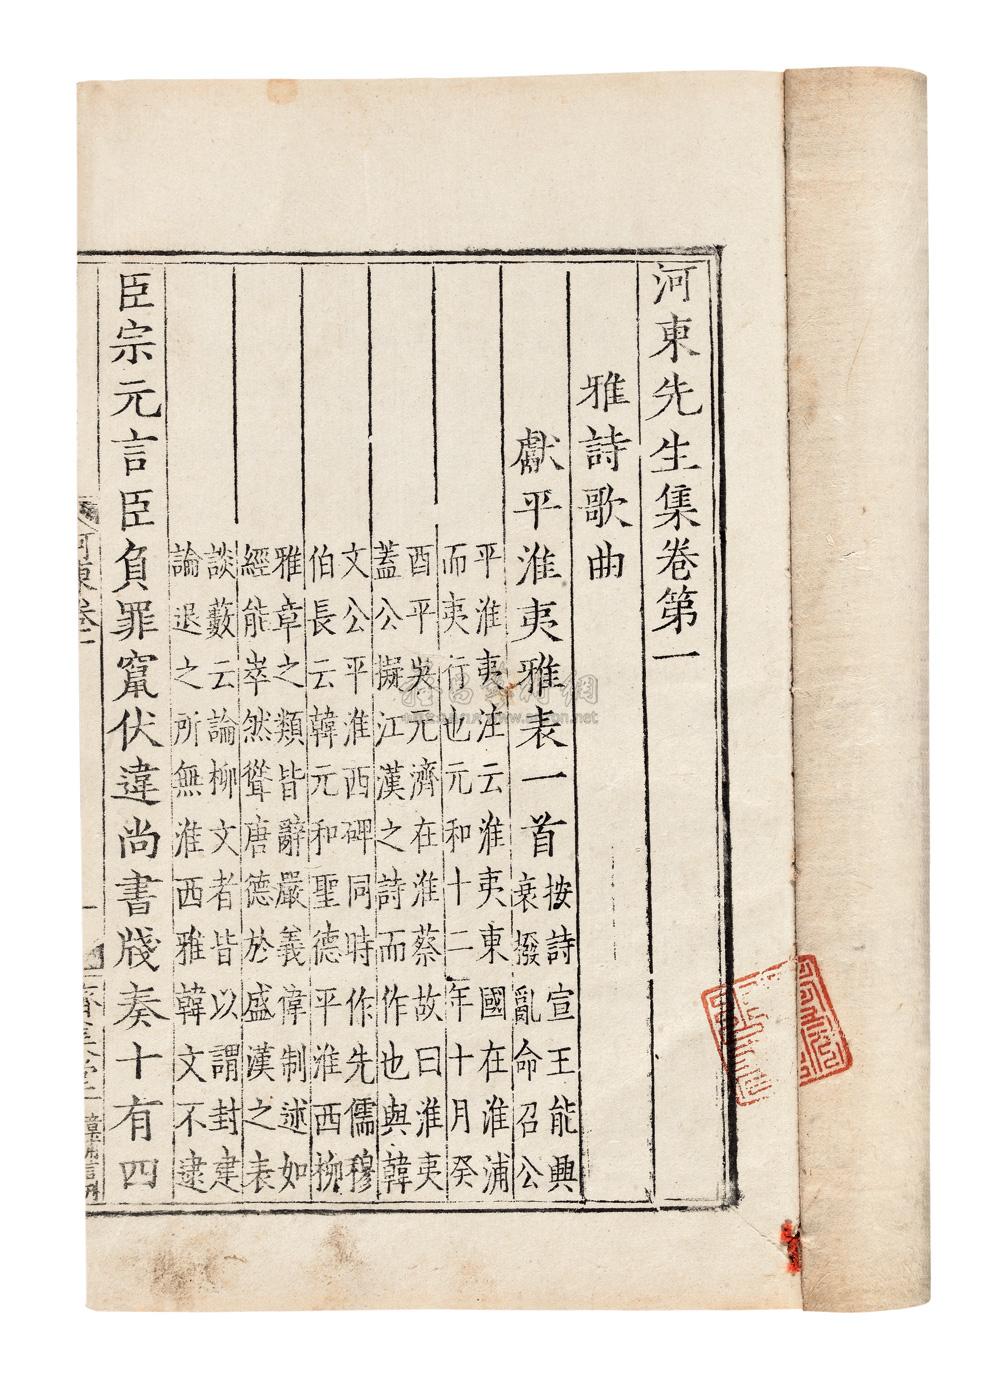 河東先生集卷第一
雅詩歌曲
獻平淮夷雅表一首
按詩宣王能興
衰撥亂命召公
平淮夷注云淮夷東國在淮浦
而夷行也元和十二年十月癸
酉平吳元濟在淮蔡故曰淮夷
蓋公擬江漢之詩而作也與韓
文公平淮西碑同時作先儒穆
伯長云韓元和聖德平淮西柳
雅章之類皆辭嚴義偉制述如
經能崒然聳唐德於盛漢之表
談藪云論柳文者皆以謂封建
論退之所無淮西雅韓文不逮
臣宗元言臣負罪竄伏違尚書牋奏十有四
河東卷一